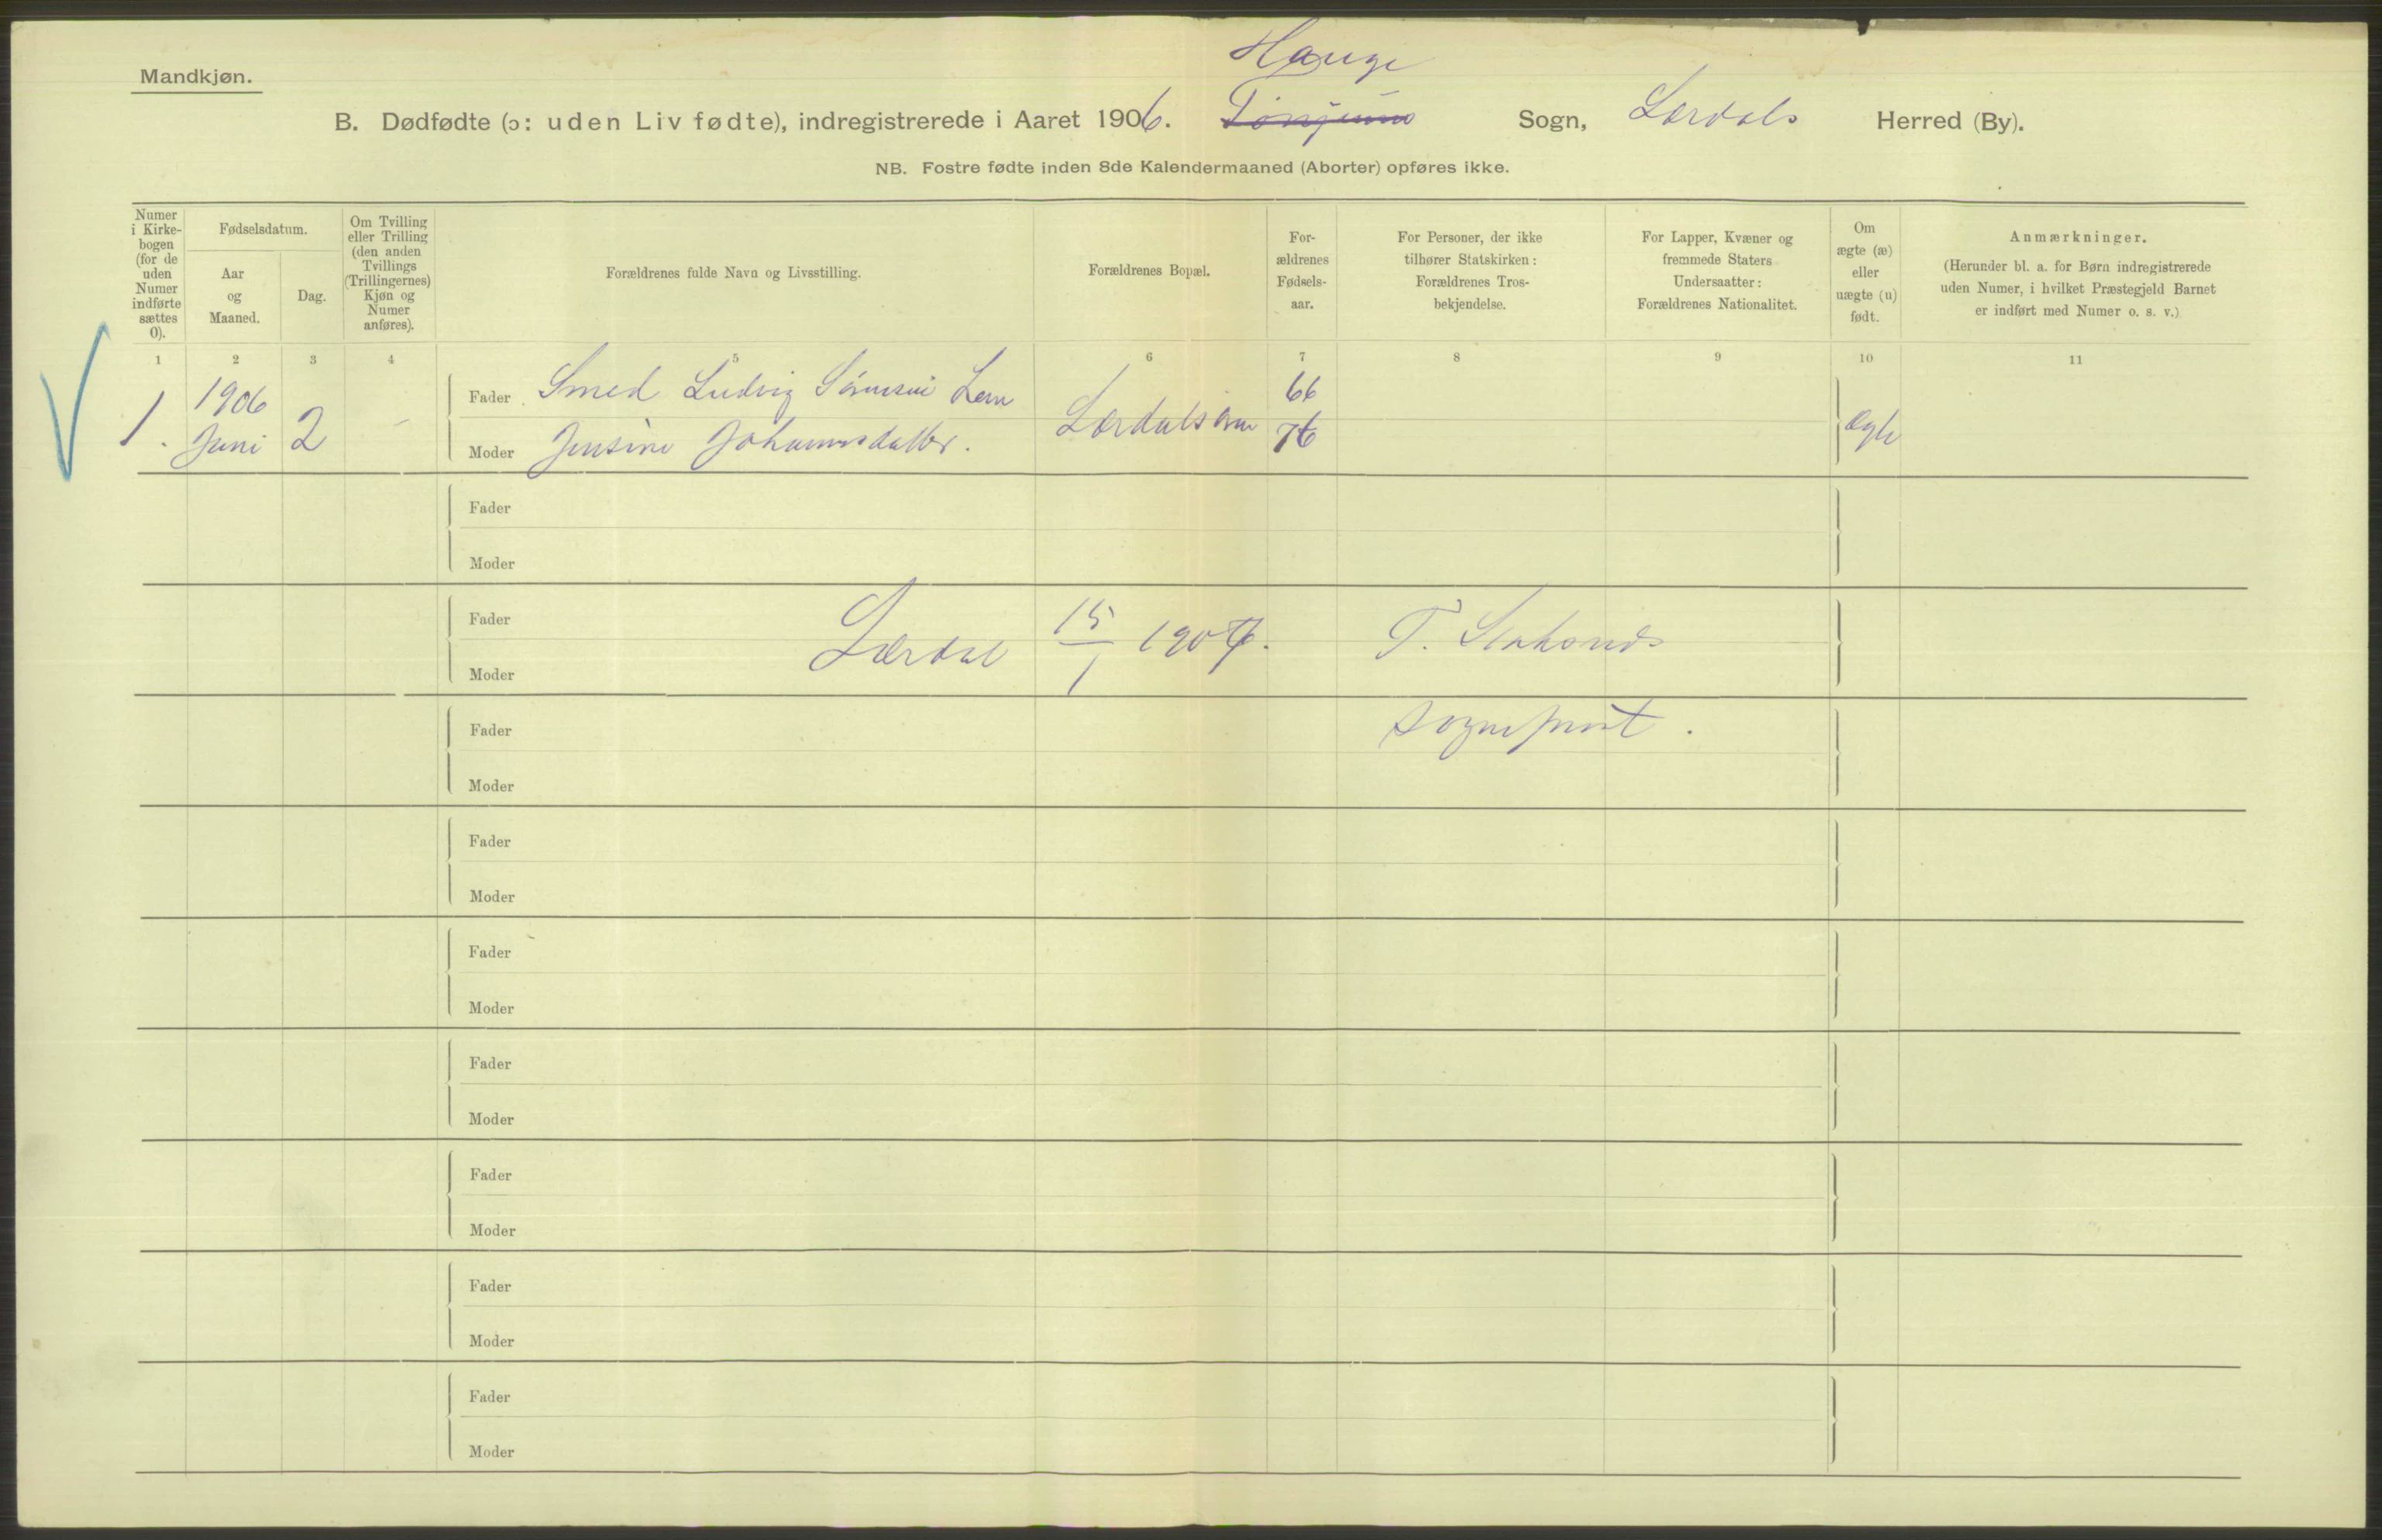 Mandkjøn.
Hauge
B. Dødfødte (ɔ: uden Liv fødte), indregistrerede i Aaret 1906. Tønjums Sogn, Lærdals Herred (By).
NB. Fostre fødte inden 8de Kalendermaaned (Aborter) opføres ikke.
Numer
i Kirke-
bogen
(for de
uden
Numer
indførte
sættes
0).
Fødselsdatum.
Aar
og
Maaned.
Dag.
Om Tvilling
eller Trilling
(den anden
Tvillings
(Trillingernes)
Kjøn og
Numer
anføres).
Forældrenes fulde Navn og Livsstilling.
Forældrenes Bopæl.
For-
ældrenes
Fødsels-
aar.
For Personer, der ikke
tilhører Statskirken:
Forældrenes Tros-
bekjendelse.
For Lapper, Kvæner og
fremmede Staters
Undersaatter:
Forældrenes Nationalitet.
Om
ægte (æ)
eller
uægte (u)
født.
Anmærkninger.
(Herunder bl. a. for Børn indregistrerede
uden Numer, i hvilket Præstegjeld Barnet
er indført med Numer o. s. v.)
1 2 3 4 5 6 7 8 9 10 11
1. 1906 Juni 2 -
Fader Smed Ludvig Sørensen 66
Moder Jensine Johannesdatter. Lærdalsøren 76 ægte
Fader
Moder
Fader
Lærdal 15/1 1907. T.
Moder
Fader
sogneprest.
Moder
Fader
Moder
Fader
Moder
Fader
Moder
Fader
Moder
Fader
Moder
Fader
Moder